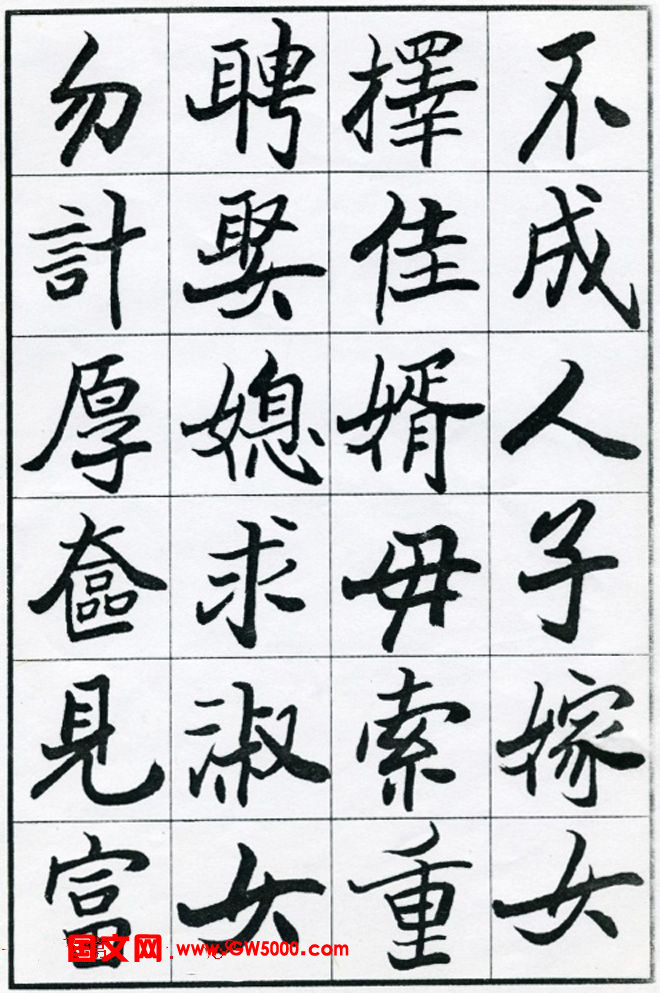 不成人子嫁女
擇佳婿毋索重
聘娶媳求淑女
勿計厚奩見富
国文网 www.GW5000.com